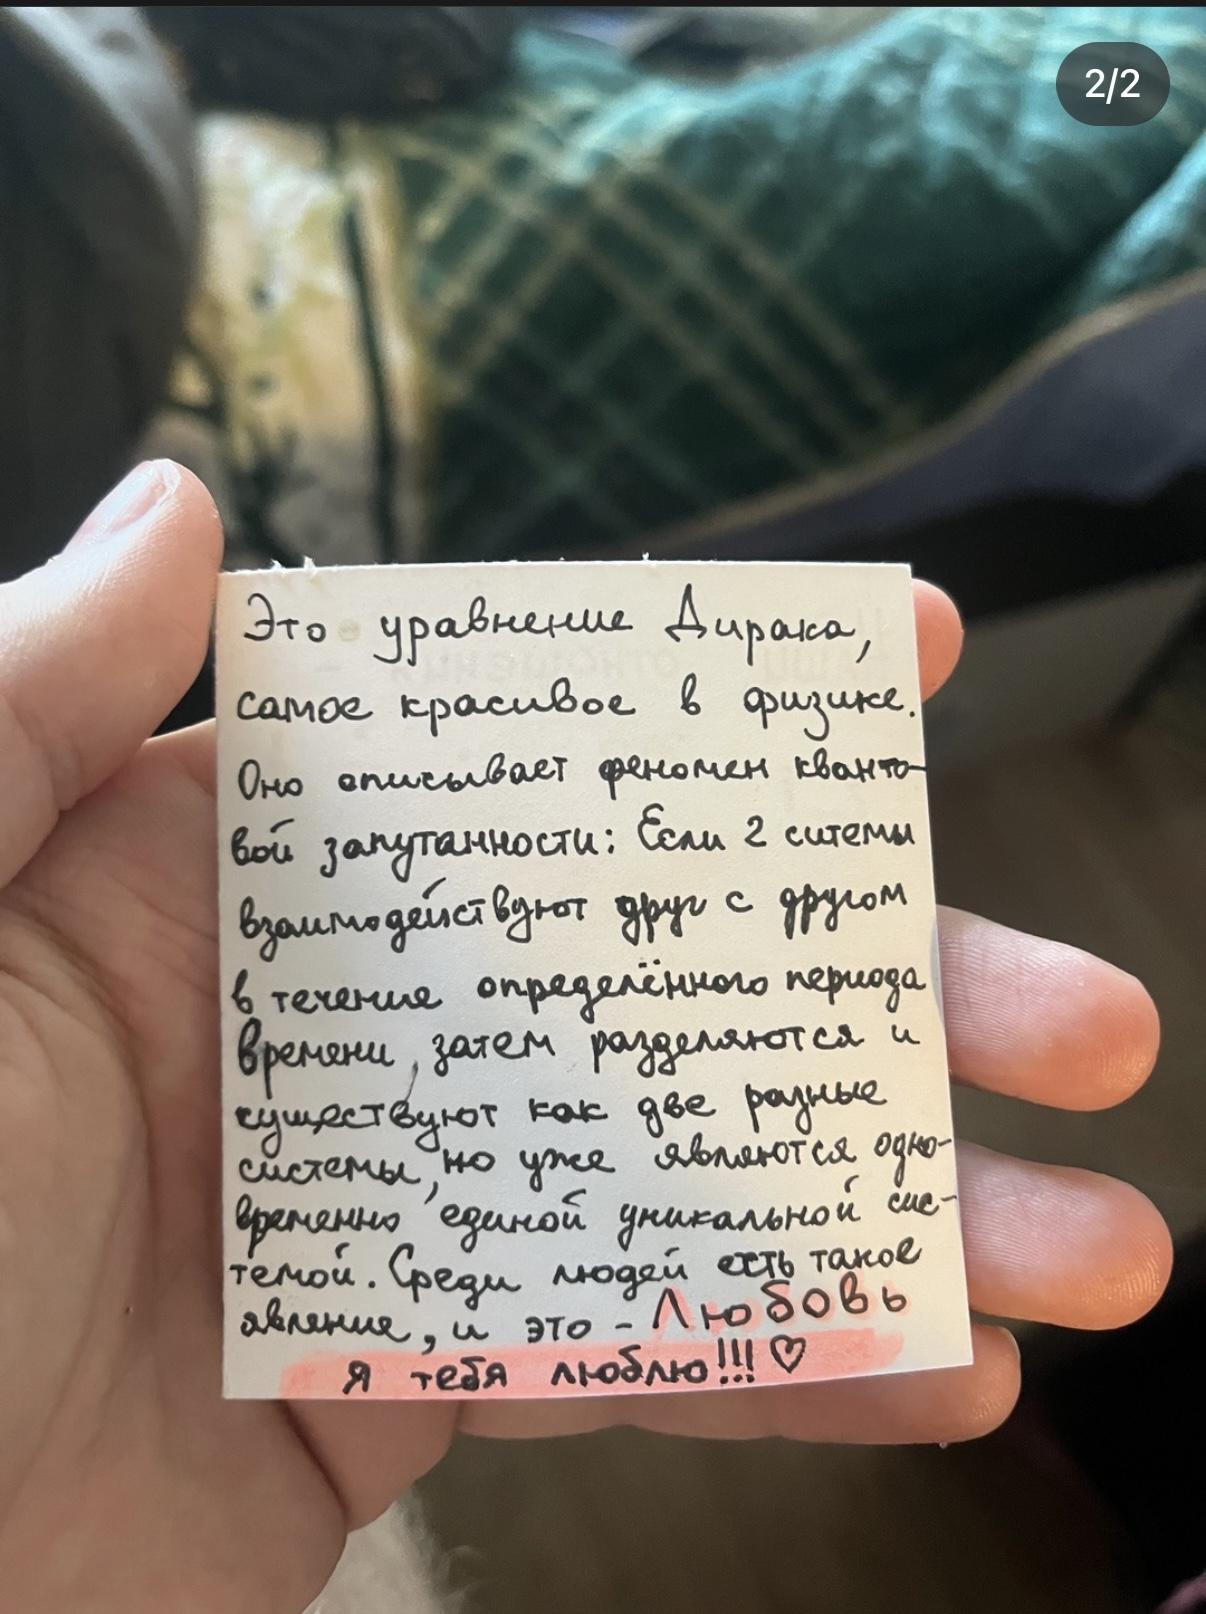 2/2
Это уравнение Дирака,
самое красивое в физике.
Оно описывает феномен кванто-
вой запутанности: Если 2 ситемы
взаимодействуют друг с другом
в течение определённого периода
времени, затем разделяются и
существуют как две разные
системы, но уже являются одно-
временно единой уникальной сис-
темой. Среди людей есть такое
явление, и это - Любовь
я тебя люблю!!! ♡